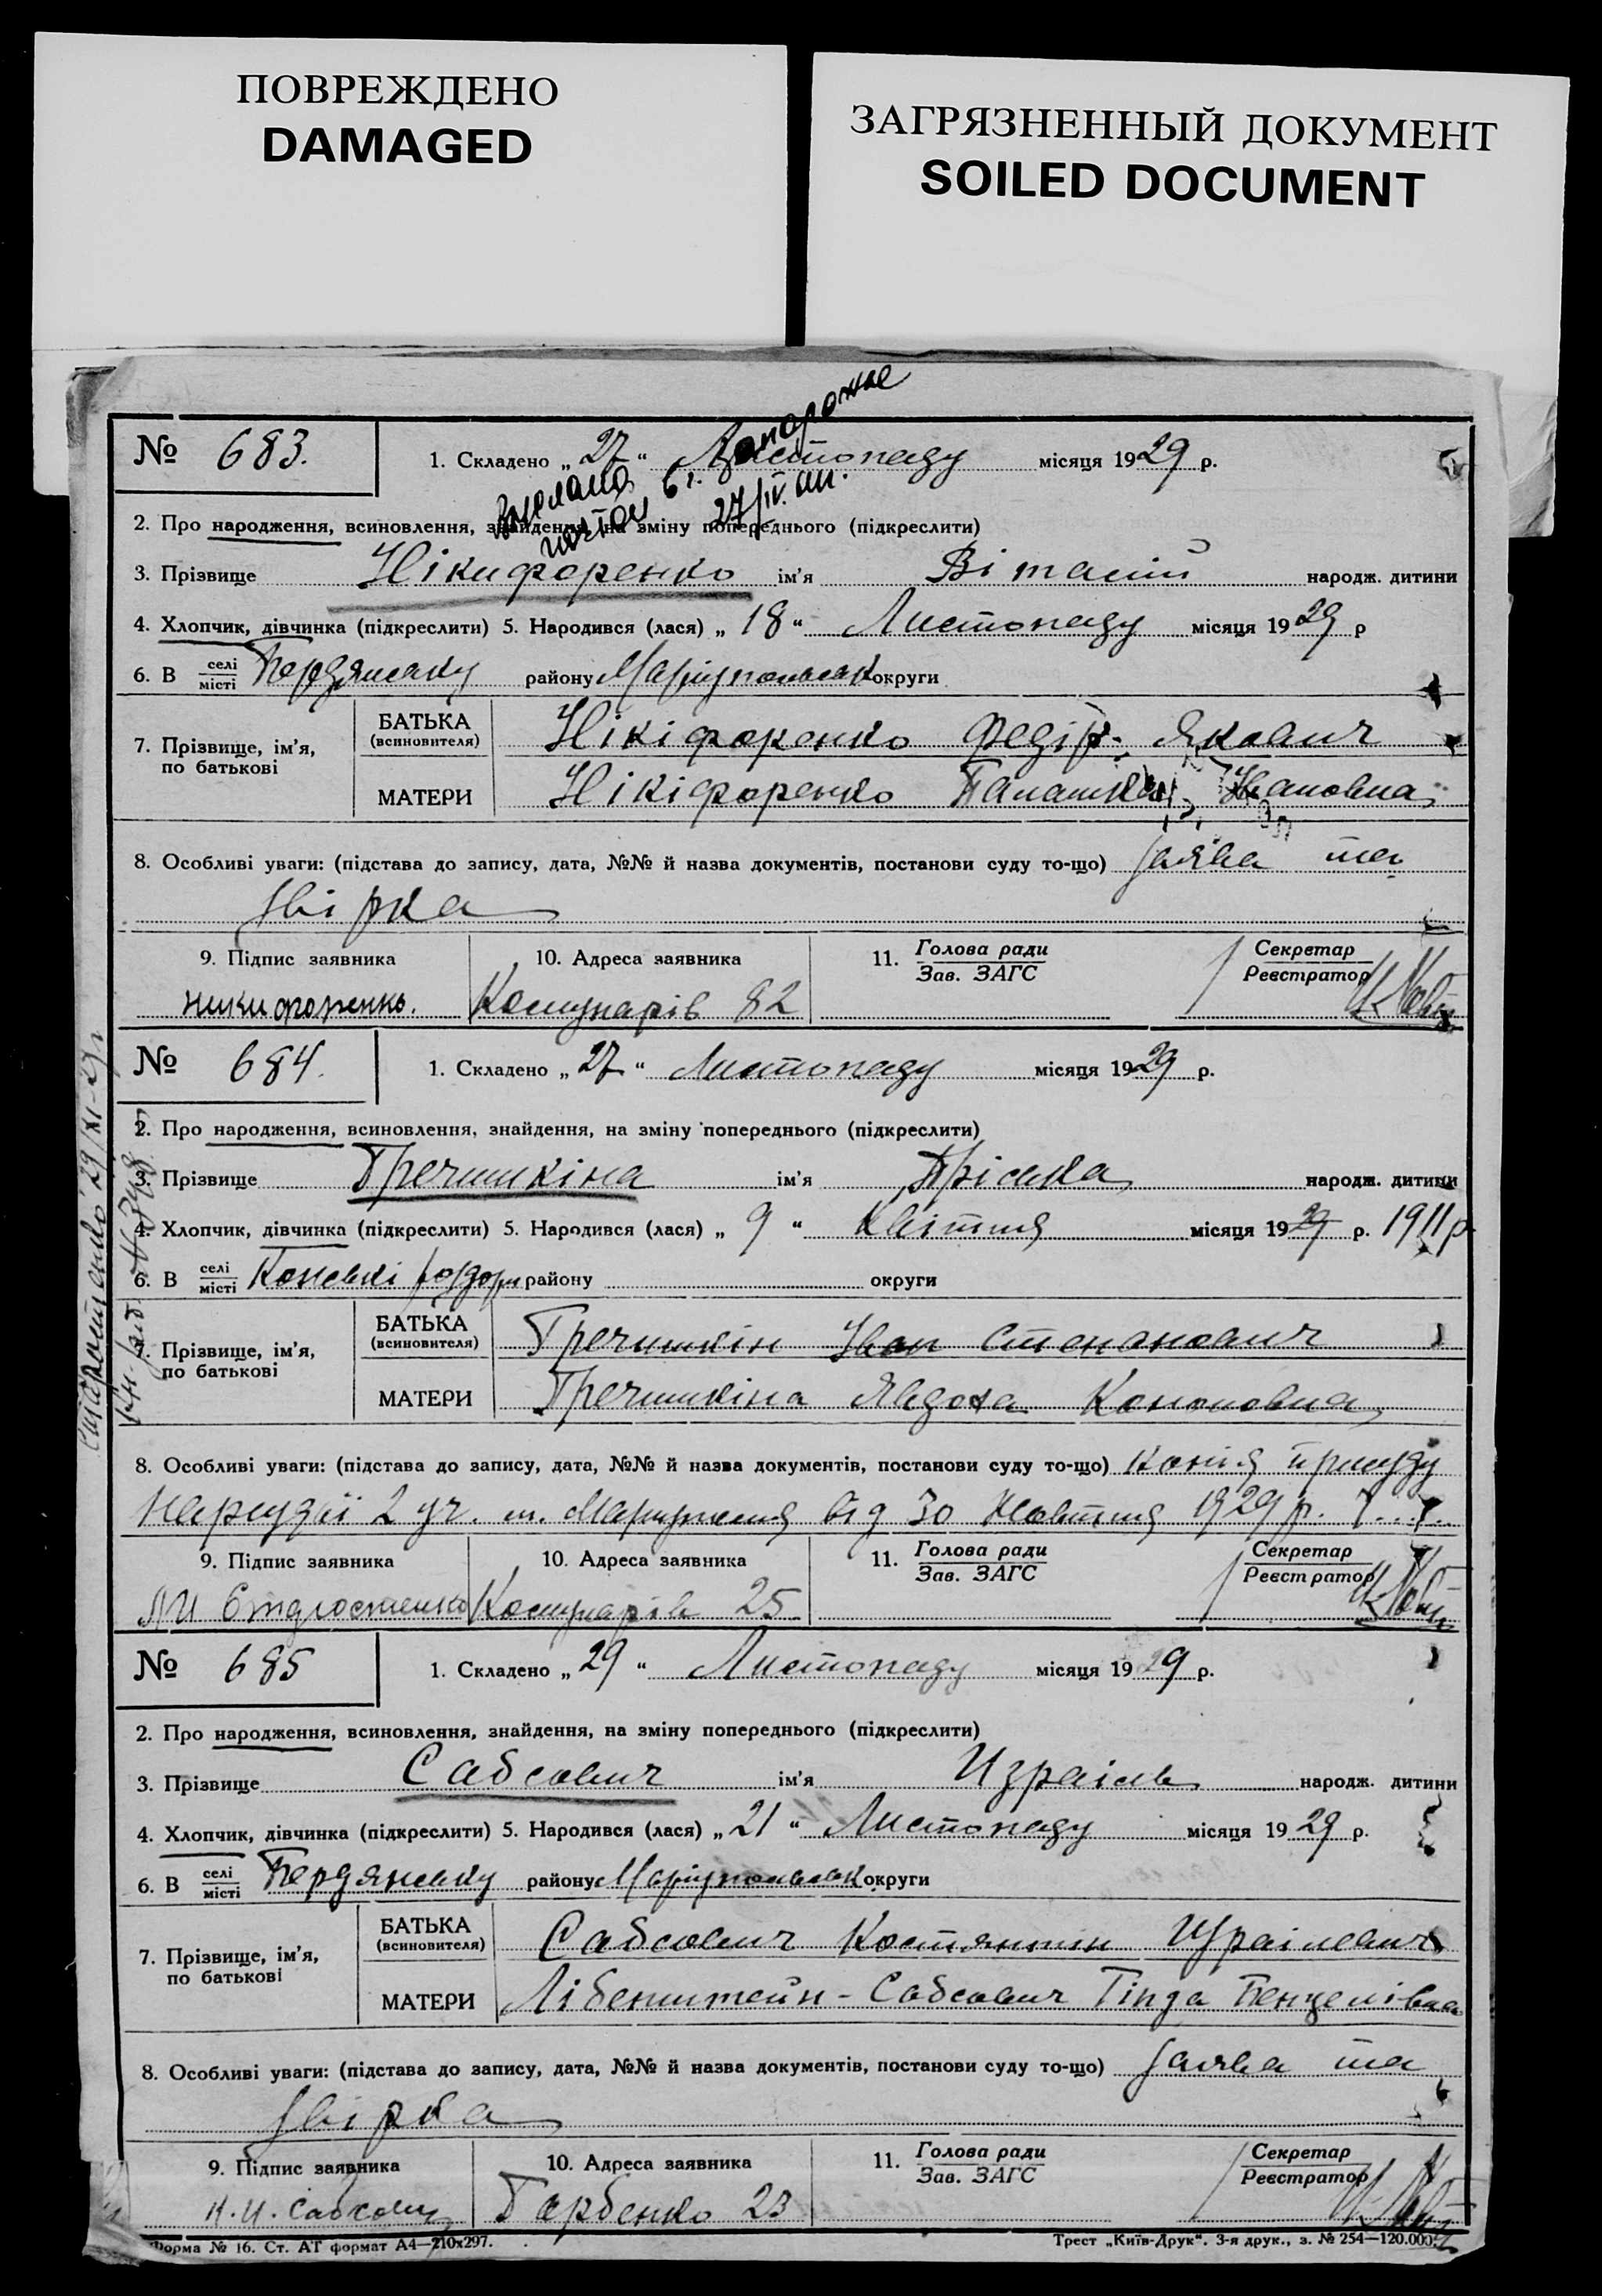 ПОВРЕЖДЕНО
DAMAGED
ЗАГРЯЗНЕННЫЙ ДОКУМЕНТ
SOILED DOCUMENT
№ 683. 1. Складено „ 27 “ Листопаду місяця 1929 р.
Запорожье
27/IV
2. Про народження, всиновлення, знайдення, на зміну попереднього (підкреслити)
3. Прізвище Нікифоренко ім’я Віталий народж. дитини
4. Хлопчик, дівчинка (підкреслити) 5. Народився (лася) „ 18 “ Листопаду місяця 1929 р
6. В селі/місті Бердянську району Маріупольськ округи
7. Прізвище, ім’я, по батькові
БАТЬКА (всиновителя) Нікіфоренко Федір Якович
МАТЕРИ Нікіфоренко Ивановна
8. Особливі уваги: (підстава до запису, дата, №№ й назва документів, постанови суду то-що) Заява та
звірка
9. Підпис заявника 10. Адреса заявника 11. Голова ради/Зав. ЗАГС Секретар/Реєстратор
Никифоренко. Комунарів 82
№ 684. 1. Складено „ 27 “ Листопаду місяця 1929 р.
2. Про народження, всиновлення, знайдення, на зміну попереднього (підкреслити)
3. Прізвище Гречишкіна ім’я Пріська народж. дитини
4. Хлопчик, дівчинка (підкреслити) 5. Народився (лася) „ 9 “ Квітня місяця 1929 р. 1911 р
6. В селі/місті Конські роздори району округи
7. Прізвище, ім’я, по батькові
БАТЬКА (всиновителя) Гречишкін Иван Степанович
МАТЕРИ Гречишкіна Явдоха Кононовна
8. Особливі уваги: (підстава до запису, дата, №№ й назва документів, постанови суду то-що) Копія присуду
Нарсудді 2 уч. м. Маріупіля від 30 Жовтня 1929 р.
9. Підпис заявника 10. Адреса заявника 11. Голова ради/Зав. ЗАГС Секретар/Реєстратор
Комунарів 25
29/XI-29 г
№ 685 1. Складено „ 29 “ Листопаду місяця 1929 р.
2. Про народження, всиновлення, знайдення, на зміну попереднього (підкреслити)
3. Прізвище Сабсович ім’я Израіль народж. дитини
4. Хлопчик, дівчинка (підкреслити) 5. Народився (лася) „ 21 “ Листопаду місяця 1929 р.
6. В селі/місті Бердянську району Маріупольськ округи
7. Прізвище, ім’я, по батькові
БАТЬКА (всиновителя) Сабсович Костянтин Ізраілевич
МАТЕРИ Лібенштейн - Сабсович Гінда Бенцелівна
8. Особливі уваги: (підстава до запису, дата, №№ й назва документів, постанови суду то-що) Заява та
звірка
9. Підпис заявника 10. Адреса заявника 11. Голова ради/Зав. ЗАГС Секретар/Реєстратор
К. И. Сабсович Горбенко 23
Форма № 16. Ст. АТ формат А4—210x297. Трест „Київ-Друк“. 3-я друк., з. № 254—120.000.